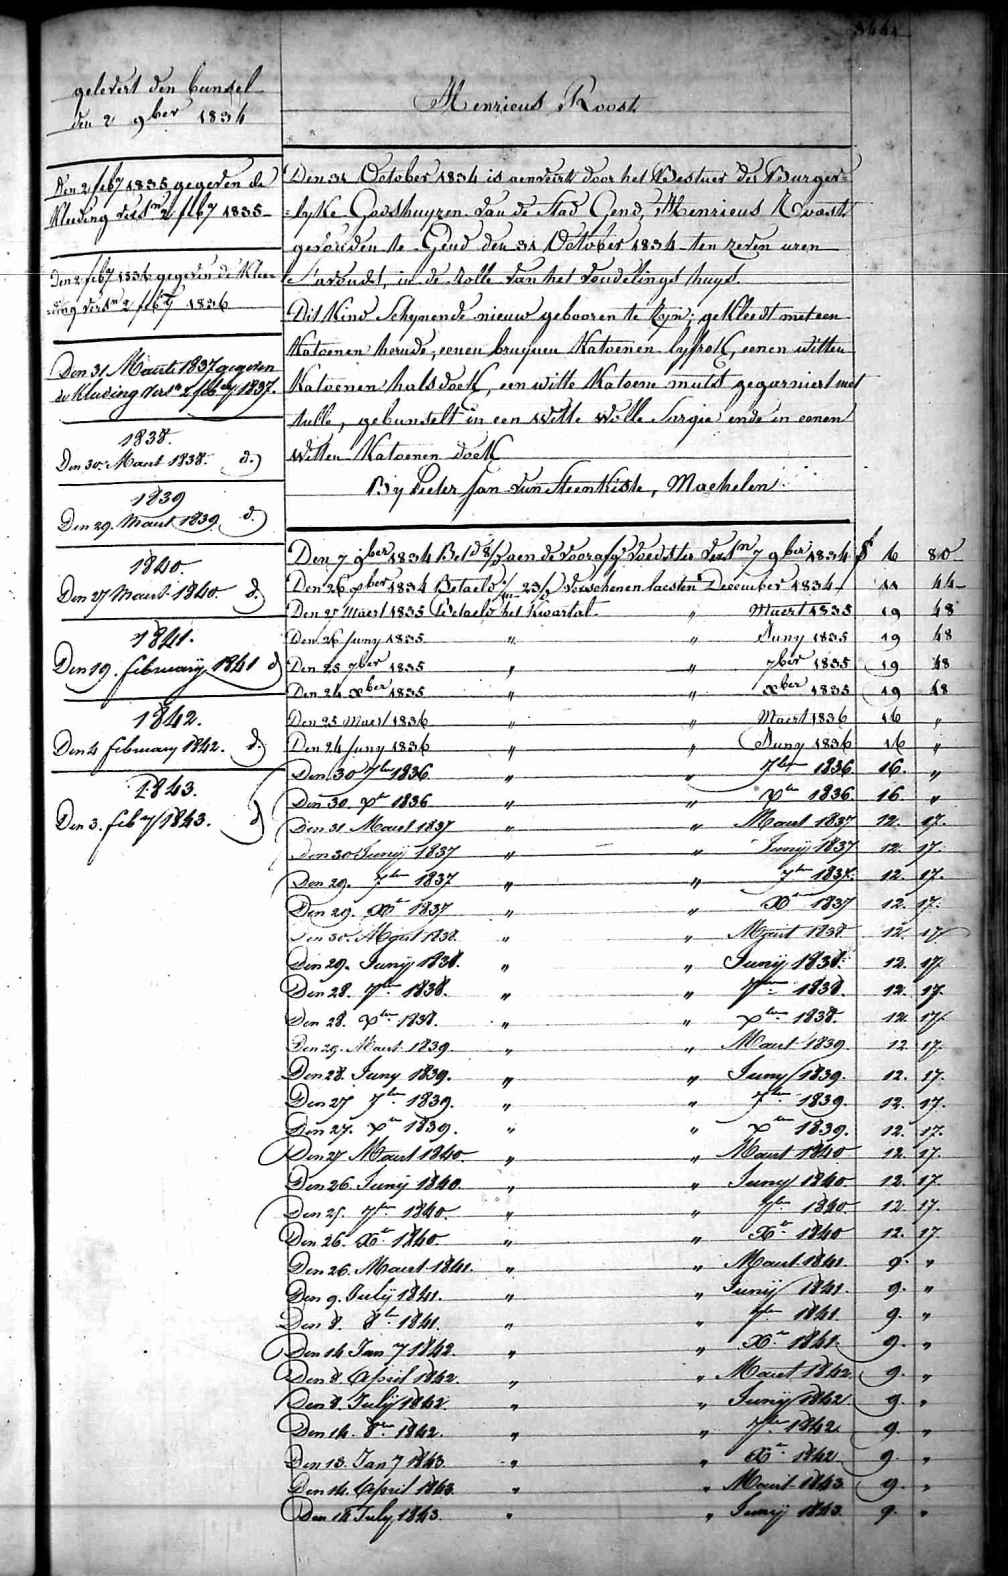 gelevert den bunsel
den 2 9ber 1834
Henricus Roost
Den 2 feby 1835 gegeven de
kleeding versn 2 feby 1835
Den 2 feby 1836 gegeven de klee-
ding versn 2 feby 1836
Den 31 Maerte 1837 gegeven
de kleeding versn 2 feby 1837.
1838.
Den 30. Maert 1838. d.)
1839
Den 29. Maert 1839. d.)
1840.
Den 27 Maert 1840. d.)
1841.
Den 19. february 1841 d)
1842.
Den 4 february 1842. d.)
1843.
Den 3. feby 1843. d)
Den 31 October 1834 is aenveirt door het Bestuer der Burger=
=lyke Godshuyzen van de stad Gend, Henricus Roost
gevonden te Gend den 31 October 1834 ten zeven uren
s'avonds, in de rolle van het vondelings huys.
Dit kind schynende nieuw gebooren te zyn; gekleedt met een
katoenen hemde, eenen bruynen katoenen lyfrok, eenen witten
katoenen halsdoek, een witte katoene mutst gegarniert met
tulle, gebunselt in een witte wolle sargie ende in eenen
witten katoenen doek
By Pieter Jan Van Steenkiste, Machelen
Den 7 9ber 1834 Betd aen de voorafge voedster versn 7 9ber 1834 f 6 80
Den 26 xber 1834 Betaeld 23/ verschenen laesten December 1834 11 44
Den 27 Maert 1835 Betaeld het kwartal " Maert 1835 19 48
Den 26 Juny 1835 " " Juny 1835 19 48
Den 25 7ber 1835 " " 7ber 1835 19 48
Den 24 xber 1835 " " xber 1835 19 48
Den 25 Maert 1836 " " Maert 1836 16 "
Den 24 Juny 1836 " " Juny 1836 16 "
Den 30 7ber 1836 " " 7ber 1836 16. "
Den 30. Xr 1836 " " Xr 1836 16. "
Den 31 Maert 1837 " " Maert 1837 12. 17.
Den 30 Junij 1837 " " Junij 1837 12. 17.
Den 29. 7ber 1837 " " 7ber 1837. 12. 17.
Den 29. Xr 1837 " " Xr 1837 12. 17.
Den 30. Maert 1838. " " Maert 1838. 12. 17
Den 29. Junij 1838. " " Junij 1838. 12. 17.
Den 28. 7ber 1838. " " 7ber 1838. 12. 17.
Den 28. Xber 1838. " " Xber 1838. 12. 17.
Den 29. Maert 1839. " " Maert 1839. 12 17.
Den 28. Juny 1839. " " Juny 1839. 12. 17.
Den 27 7ber 1839. " " 7ber 1839. 12. 17.
Den 27. Xr 1839. " " Xr 1839. 12. 17.
Den 27 Maert 1840. " " Maert 1840 12. 17.
Den 26. Junij 1840. " " Juny 1840 12. 17.
Den 25. 7ber 1840. " " 7ber 1840 12. 17.
Den 26. Xr 1840. " " Xr 1840 12. 17.
Den 26. Maert 1841. " " Maert 1841. 9. "
Den 9. Julij 1841. " " Junij 1841. 9. "
Den 8. 8ber 1841. " " 7ber 1841. 9. "
Den 14 Jany 1842. " " Xr 1841. 9. "
Den 8 April 1842. " " Maert 1842. 9. "
Den 8. Julij 1842 " " Junij 1842 9. "
Den 14. 8ber 1842. " " 7ber 1842 9. "
Den 13. Jany 1843. " " Xr 1842 9. "
Den 14. April 1843. " " Maert 1843 9. "
Den 14 July 1843. " " Junij 1843. 9. "